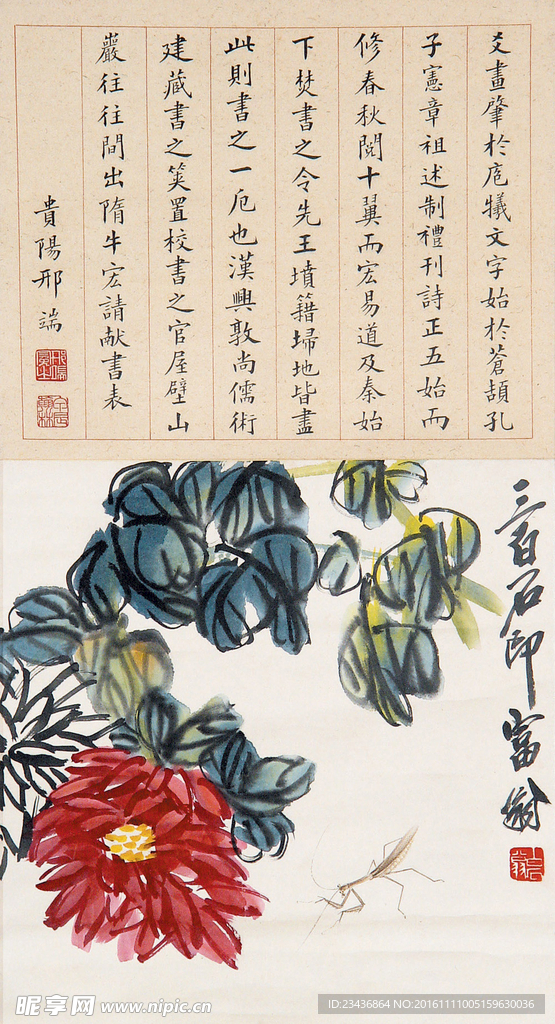 爻畫肇於庖犧文字始於蒼頡孔
子憲章祖述制禮刊詩正五始而
修春秋闡十翼而宏易道及秦始
下焚書之令先王墳籍埽地皆盡
此則書之一厄也漢興敦尚儒術
建藏書之筴置校書之官屋壁山
巖往往間出隋牛宏請献書表
貴陽邢端
三百石印富翁
昵享网 www.nipic.cn
ID:23436864 NO:20161111005159630036